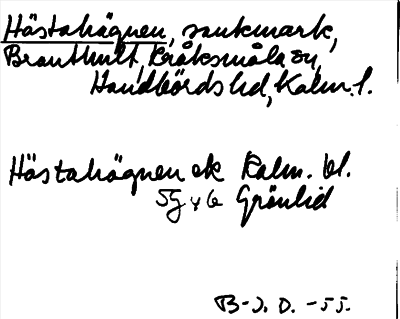 Hästahägnen, sankmark,
Branthult, Kråksmåla sn,
Handbörds hd, Kalm. l.
Hästahägnen ek Kalm. bl.
5G Grönlid
B-J. D. -55.